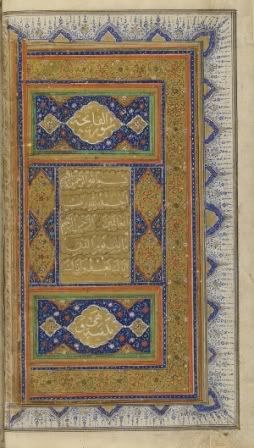 سورة الفاتحة
بسم الله الرحمن الرحيم
الحمد لله رب
العالمين الرحمن الرحيم
مالك يوم الدين
اياك نعبد واياك